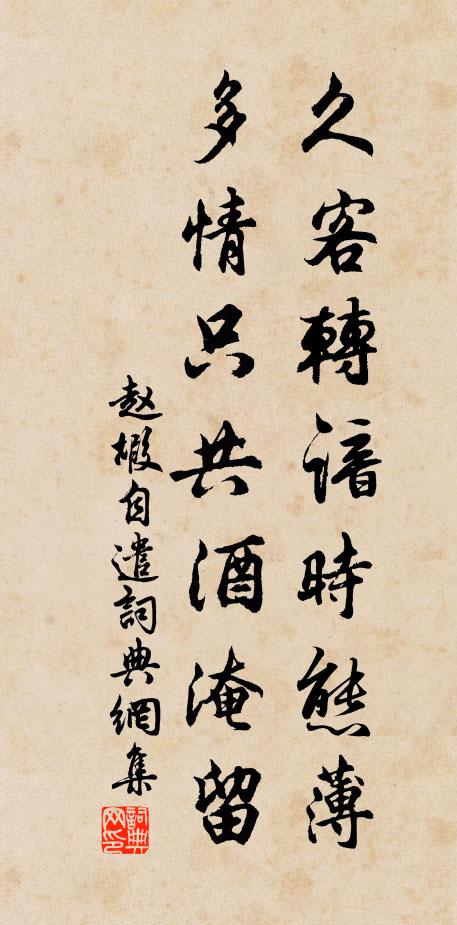 久客轉諳時態薄
多情只共酒淹留
赵嘏自遣詞典網集
詞典網印